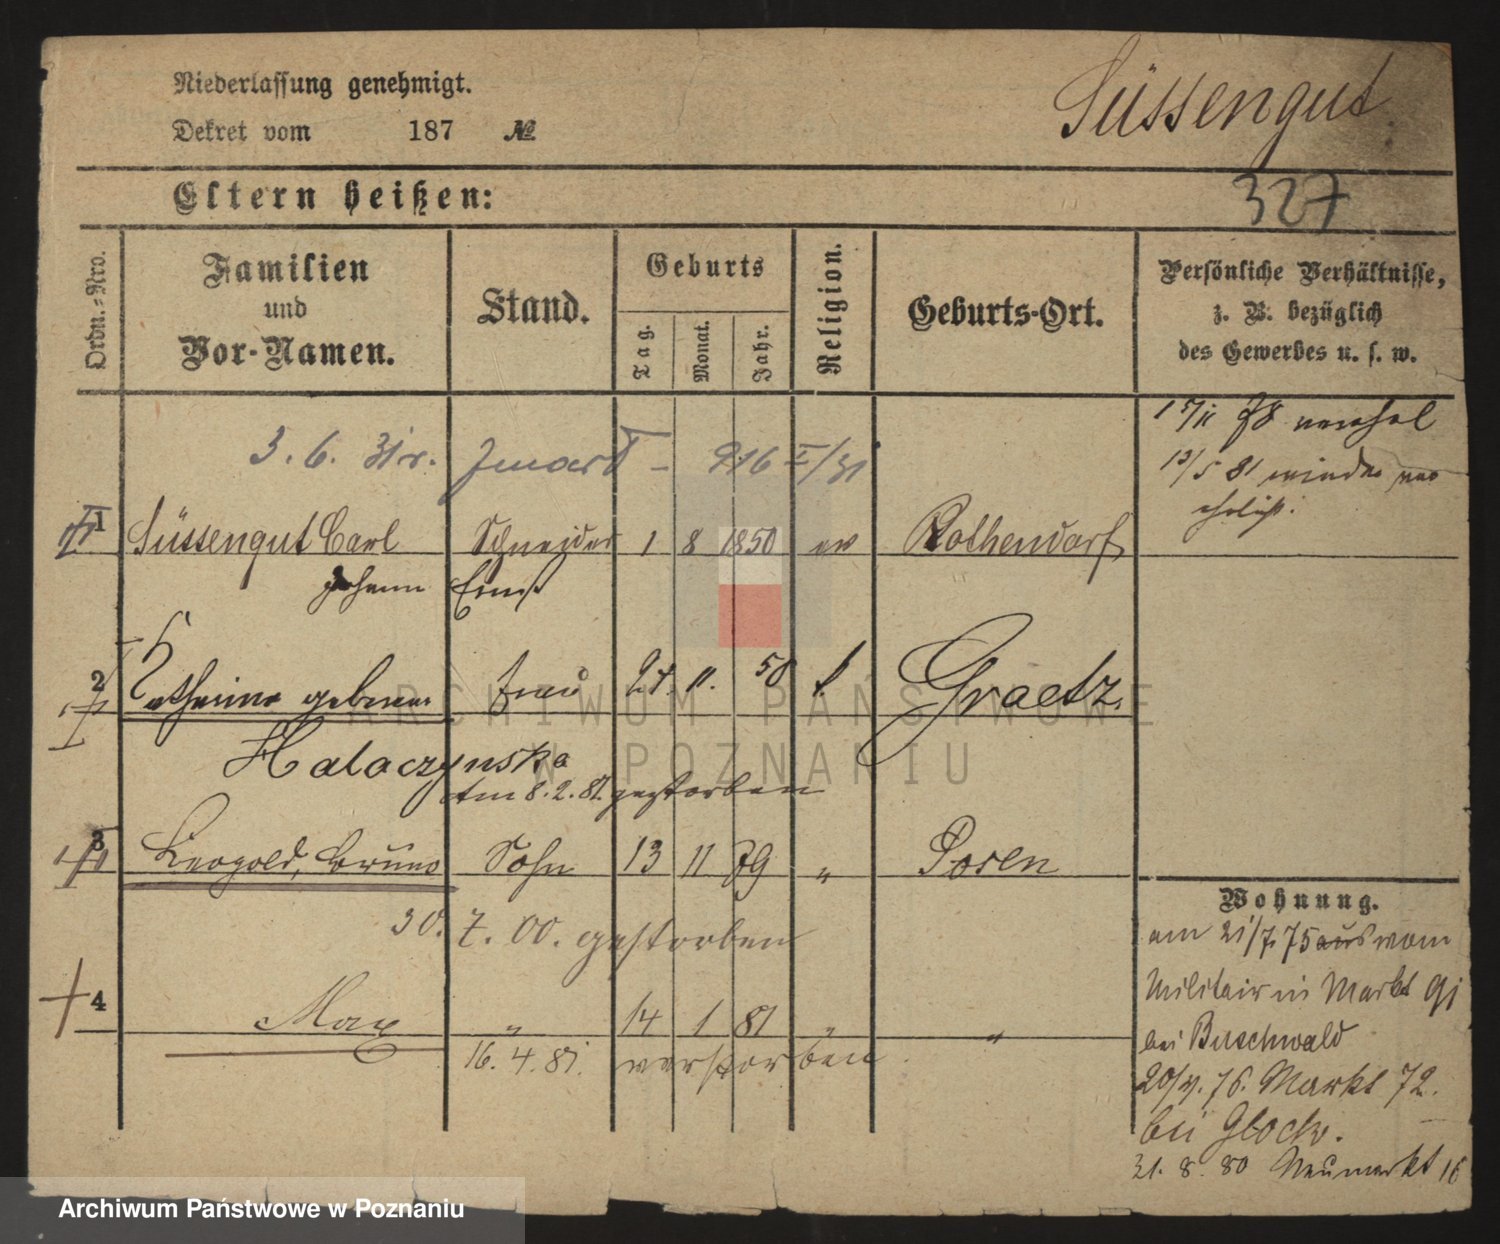 Niederlassung genehmigt.
Süssengut
Dekret vom 187 №
Eltern heißen:
327
Ordn.-Nro.
Familien
und
Vor-Namen.
Stand.
Geburts
Tag.
Monat.
Jahr.
Religion.
Geburts-Ort.
Persönliche Verhältnisse,
z. B. bezüglich
des Gewerbes u. s. w.
3. 6.
13/5 81 wieder ver
1 Süssengut Carl Schneider 1 8 1850 ev Rothendorf
Johann Ernst
2 Catharina geborene Frau 11. 50 k. Graetz.
Halaczynska
Am 8. 2. 82. gestorben
3 Leopold, Bruno Sohn 13 11 79 " Posen
Wohnung.
30. 7. 00. gestorben
am 21/7. 75 aus vom
Militair in Markt 91
4 Max " 14 1 81 " "
bei Buschwald
16. 4. 81. verstorben
76. Markt 72.
bei Glock.
31. 8. 80 Neumarkt 16
ARCHIWUM PAŃSTWOWE
W POZNANIU
Archiwum Państwowe w Poznaniu